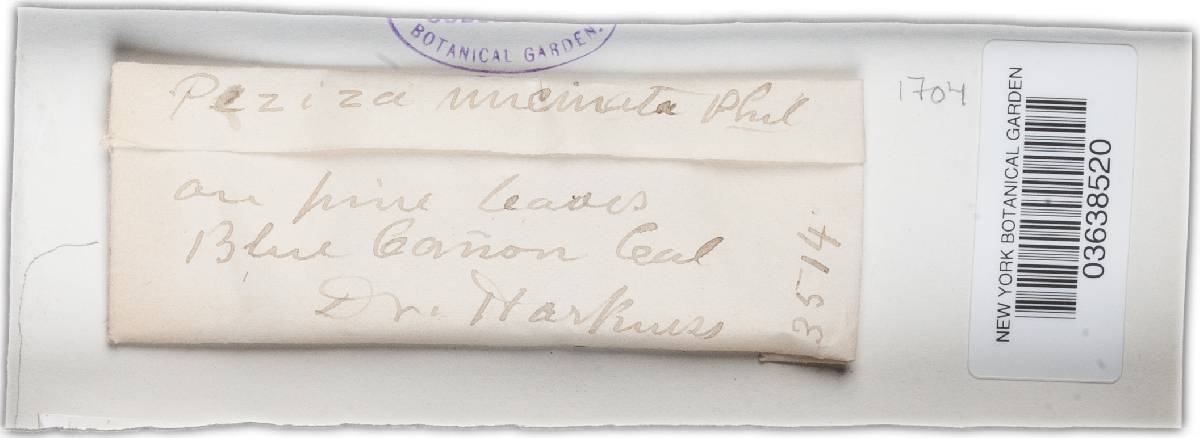 BOTANICAL GARDEN.
Peziza uncinata Phil
on pine leaves
Blue Cañon Cal
Dr. Harkness
3514
1704
NEW YORK BOTANICAL GARDEN
03638520